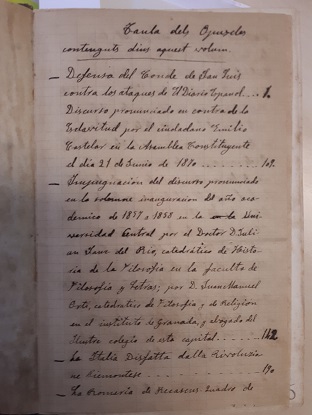 Taula dels Opuscles
contenguts dins aquest volum.
— Defensa del Conde de San Luis
contra los ataques de El Diario Español... 1.
Discurso pronunciado en contra de la
Esclavitud por el ciudadano Emilio
Castelar en la Asamblea Constituyente
el dia 21 de Junio de 1870 ......... 102.
— Impugnación del discurso pronunciado
en la solemne inauguracion del año aca-
demico de 1857 a 1858 en la Uni-
versidad Central por el Doctor D. Juli-
an Sanz del Rio, catedrático de Histo-
ria de la Filosofia en la facultad de
Filosofia y Letras; por D. Juan Manuel
Orti, catedrático de Filosofia y de Religion
en el instituto de Granada, y abogado del
Ilustre colegio de esta capital ......... 142
— La Italia Disfatta dalla Rivoluzio
ne Piemontese ......... 190
— La Romería de Recasens. Cuadro de